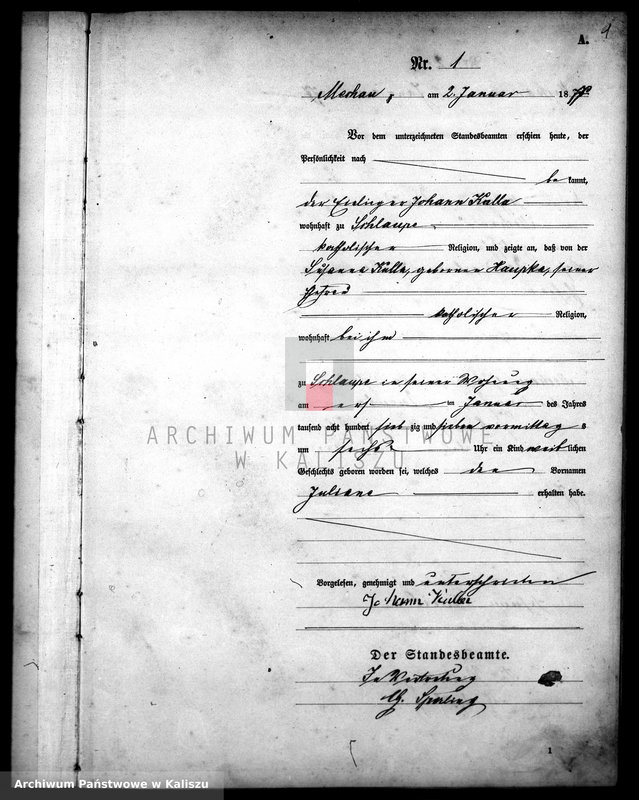 A. 9
Nr. 1
Mechau, am 2. Januar 1877
Vor dem unterzeichneten Standesbeamten erschien heute, der
Persönlichkeit nach
bekannt,
der Johann Kalla
wohnhaft zu Schlaupe
katholischer Religion, und zeigte an, daß von der
Susanna Kulla, geborenen Haupka, seiner
Ehefrau
katholischer Religion,
wohnhaft bei ihm
zu Schlaupe in seiner Wohnung
am ersten Januar des Jahres
tausend acht hundert siebzig und sieben vormittags
um sechs Uhr ein Kind weiblichen
Geschlechts geboren worden sei, welches den Vornamen
Juliana erhalten habe.
Vorgelesen, genehmigt und unterschrieben
Johann
Der Standesbeamte.
In Vertretung
1
ARCHIWUM PAŃSTWOWE
W KALISZU
Archiwum Państwowe w Kaliszu